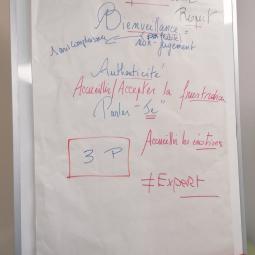 Respect
Bienveillance =
non-jugement
Authenticité
Accueillir/Accepter la frustration
Parler "Je"
Accueillir les émotions
3 P
≠ Expert